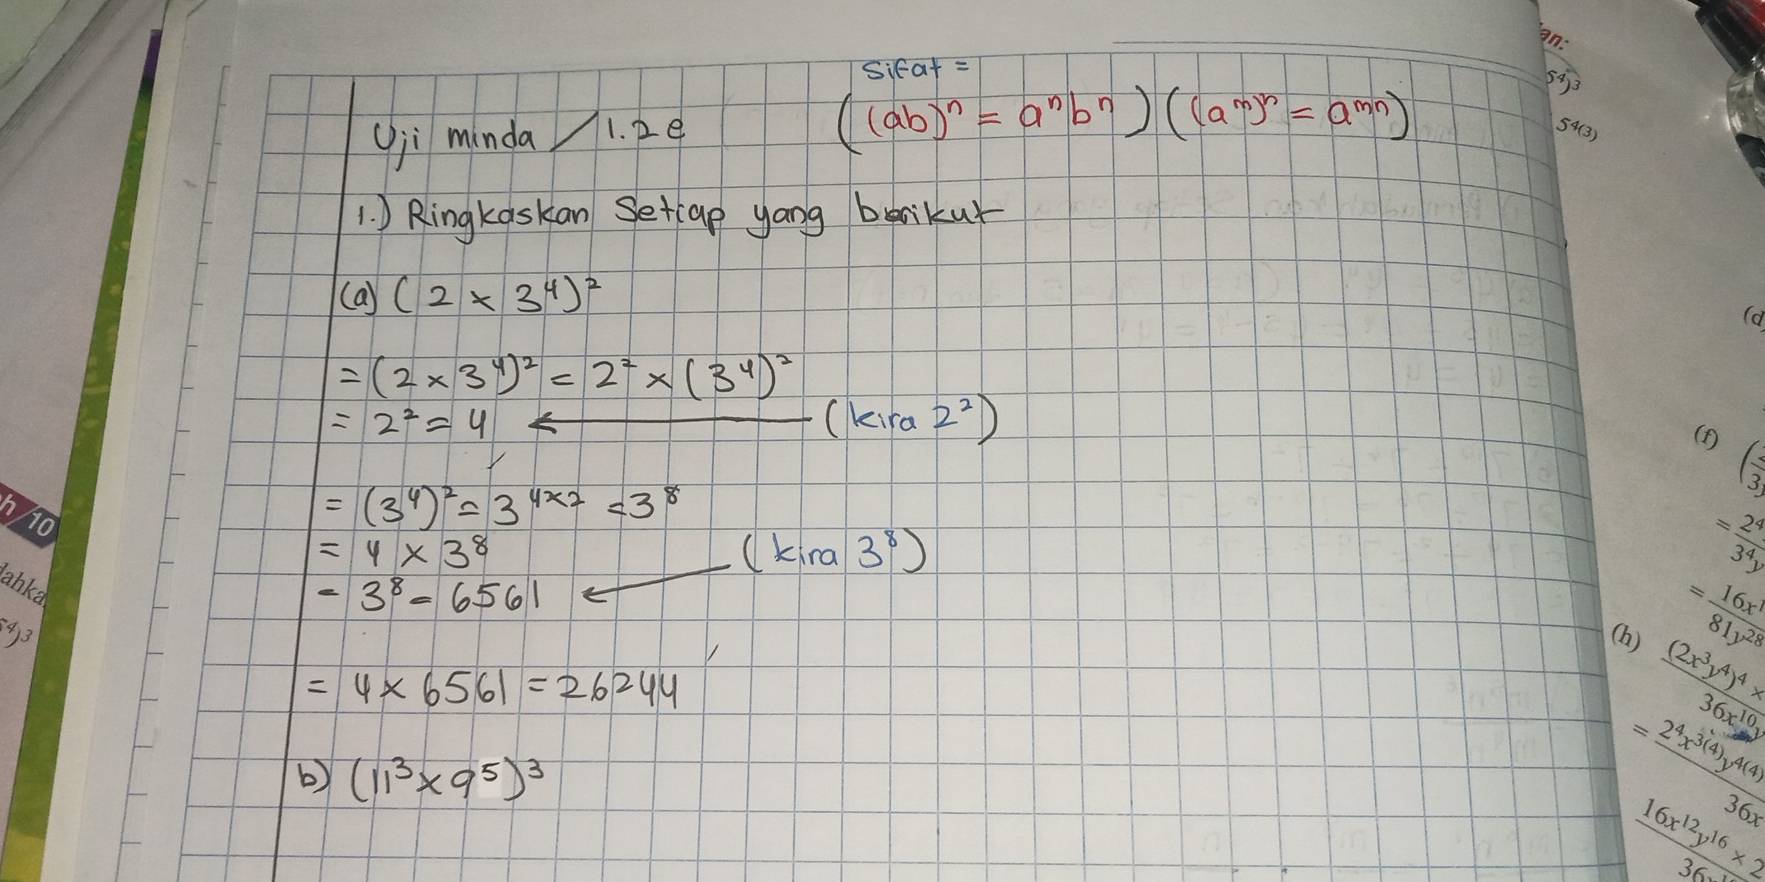 Sifat =
Uji minda / 1.2e ((ab)ⁿ = aⁿbⁿ) ((aᵐ)ⁿ = aᵐⁿ)
1.) Ringkaskan Setiap yang berikut
(a) (2 × 3⁴)²
= (2 × 3⁴)² = 2² × (3⁴)²
= 2² = 4 ← (kira 2²)
= (3⁴)² = 3⁴ˣ² = 3⁸
= 4 × 3⁸ (kira 3⁸)
= 3⁸ = 6561 ←
= 4 × 6561 = 26244
b) (11³ × 9⁵)³
h 10
⁴)³
an:
5⁴)³
5⁴⁽³⁾
(d
(f)
= 2⁴
3⁴y
= 16x¹
81y²⁸
(h) (2x³y⁴)⁴ ×
36x¹⁰y
= 2⁴x³⁽⁴⁾y⁴⁽⁴⁾
36x
16x¹²y¹⁶ × 2